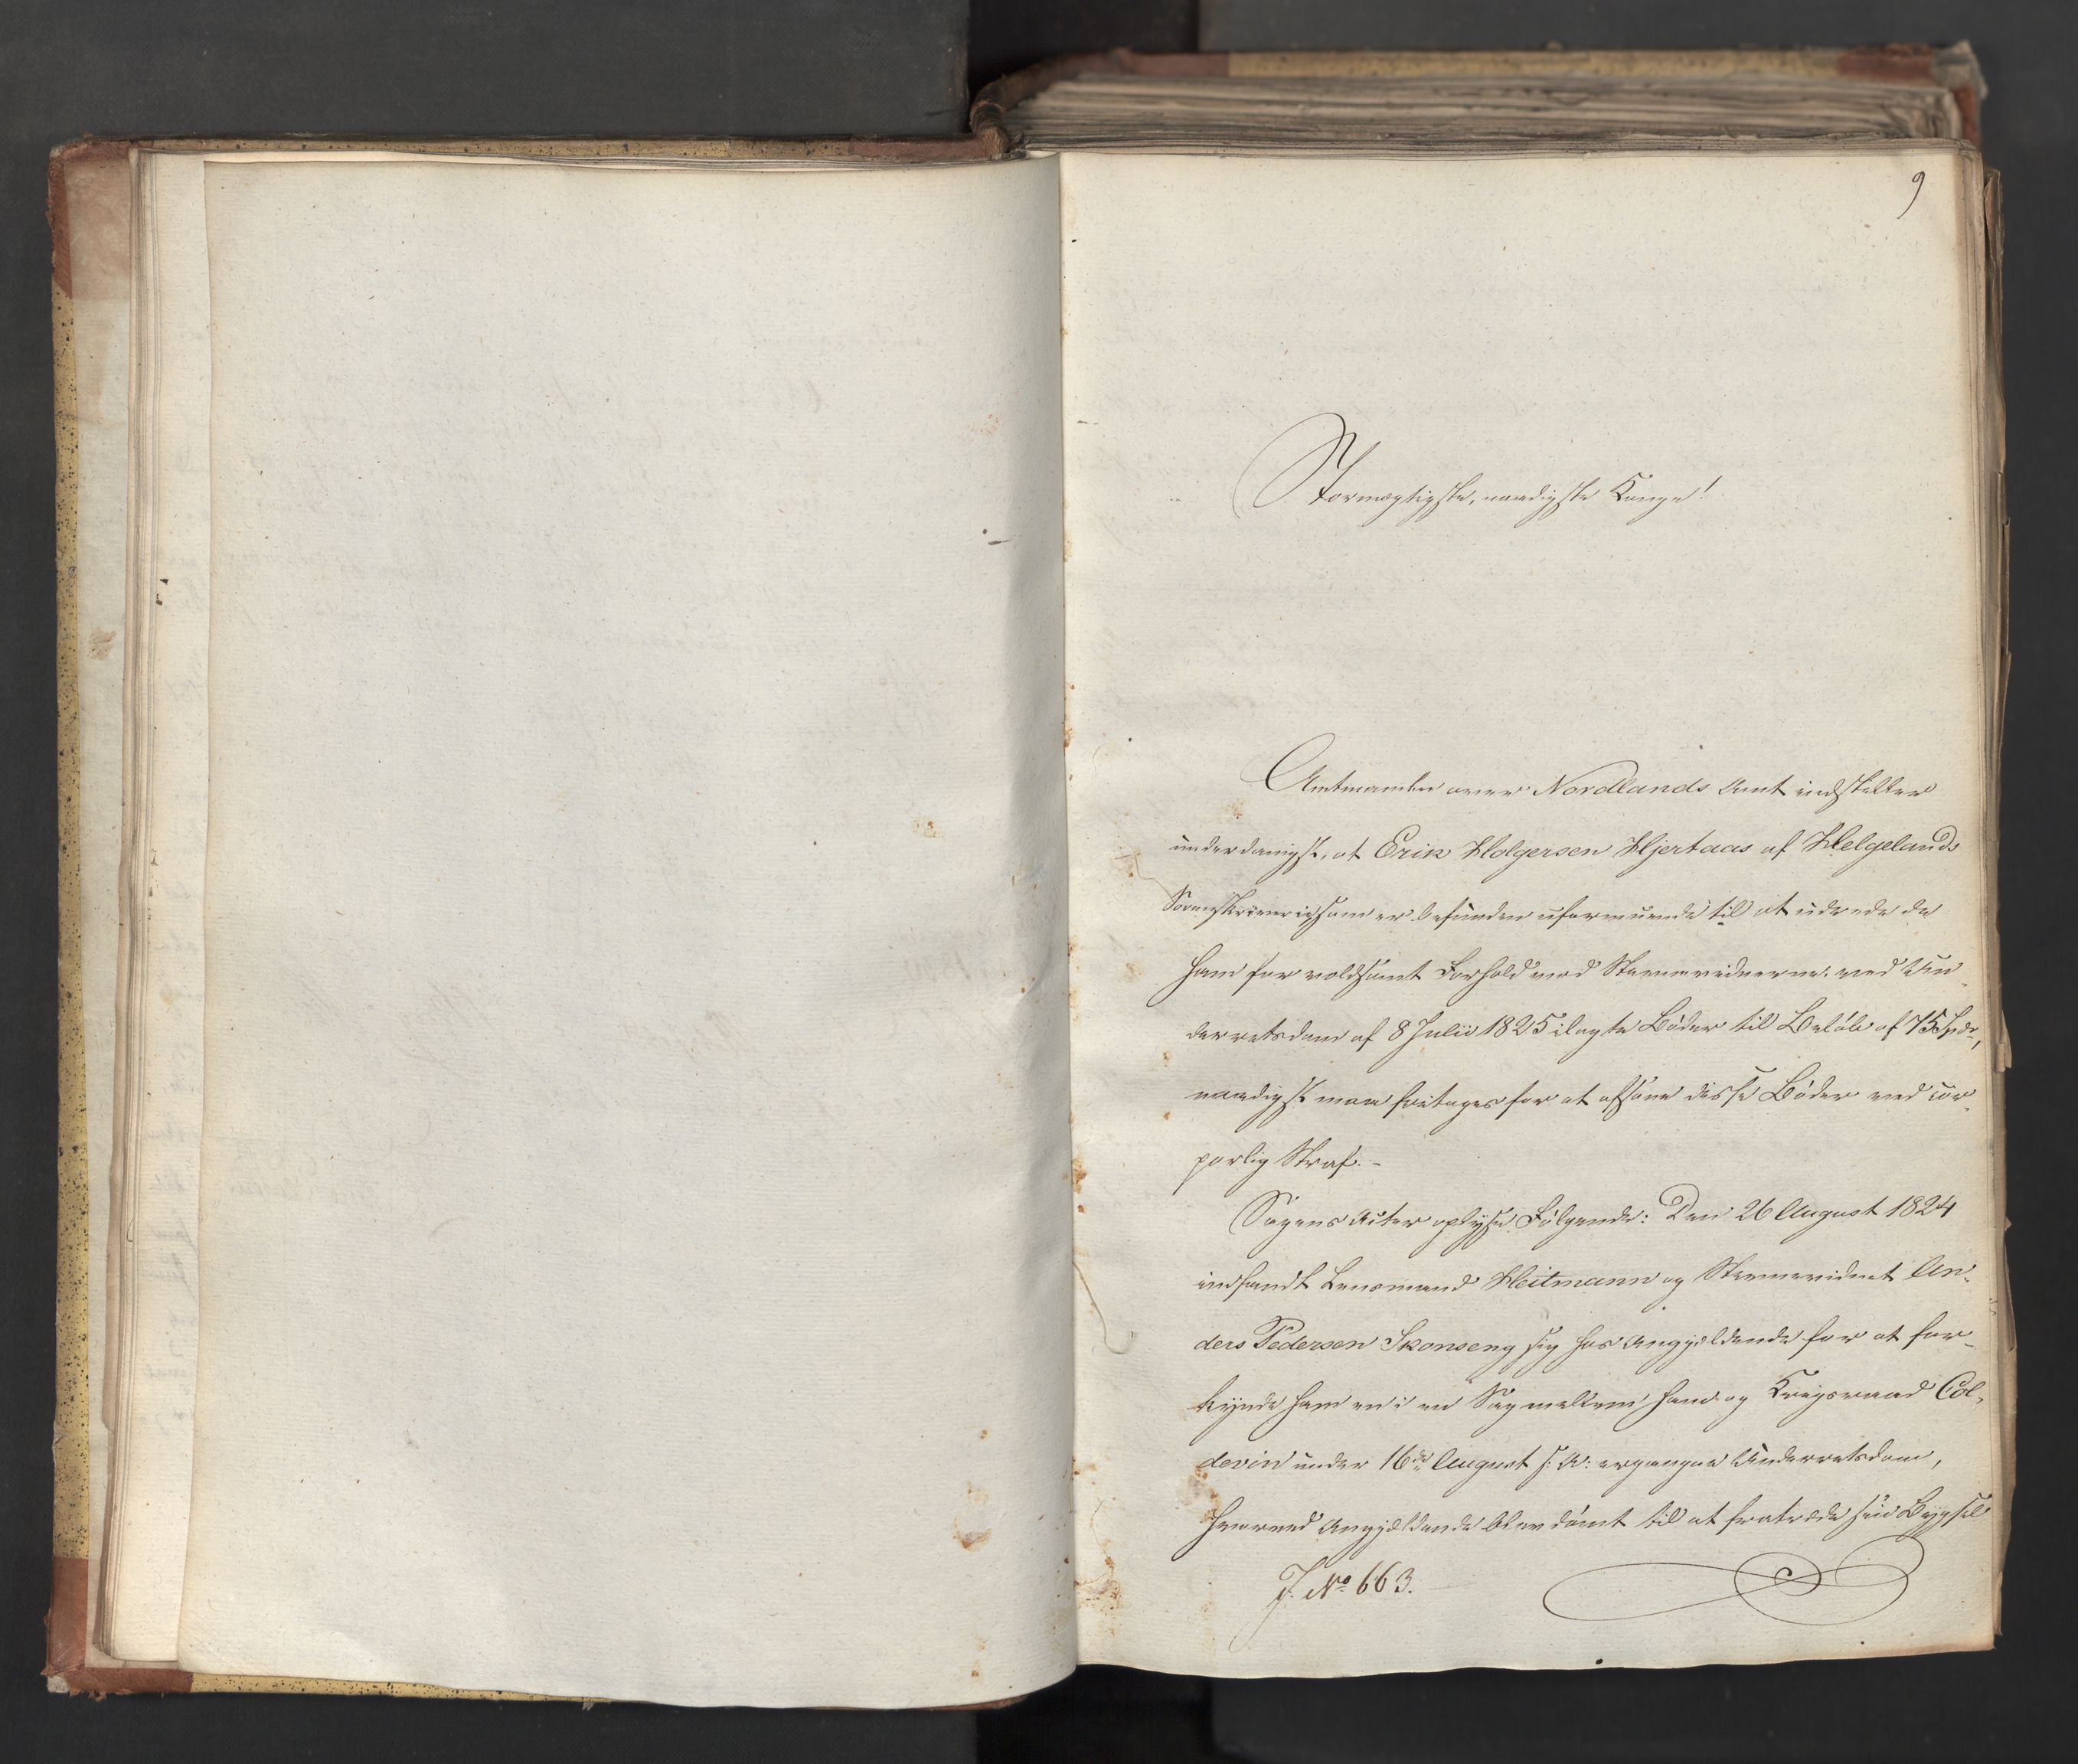 9
Stormægtigste, naadigste Konge!
Amtmanden over Nordlands Amt indstiller
underdanigst, at Erik Holgersen Hjertaas af Helgelands
Sorenskriverie, som er befunden uformuende til at udrede de
ham for voldsomt Forhold mod Stævnevidnerne ved Un-
derretsdom af 8 Julii 1825 ilagte Bøder til Beløb af 75 Spdr,
naadigst maa fritages for at afsone disse Bøder ved cor-
porlig Straf. -
Sagens Acter oplyse Følgende: Den 26 August 1824
indfandt Lensmand Heitmann og Stevnevidnet An-
ders Pedersen Skonseng sig hos Angjeldende for at for-
kynde ham en i en Sag mellem ham og Krigsraad Col-
devin under 16de August s: A: ergangen Underretsdom,
hvorved Angjeldende blev dømt til at fratræde sin Bygsel
J. No 663.